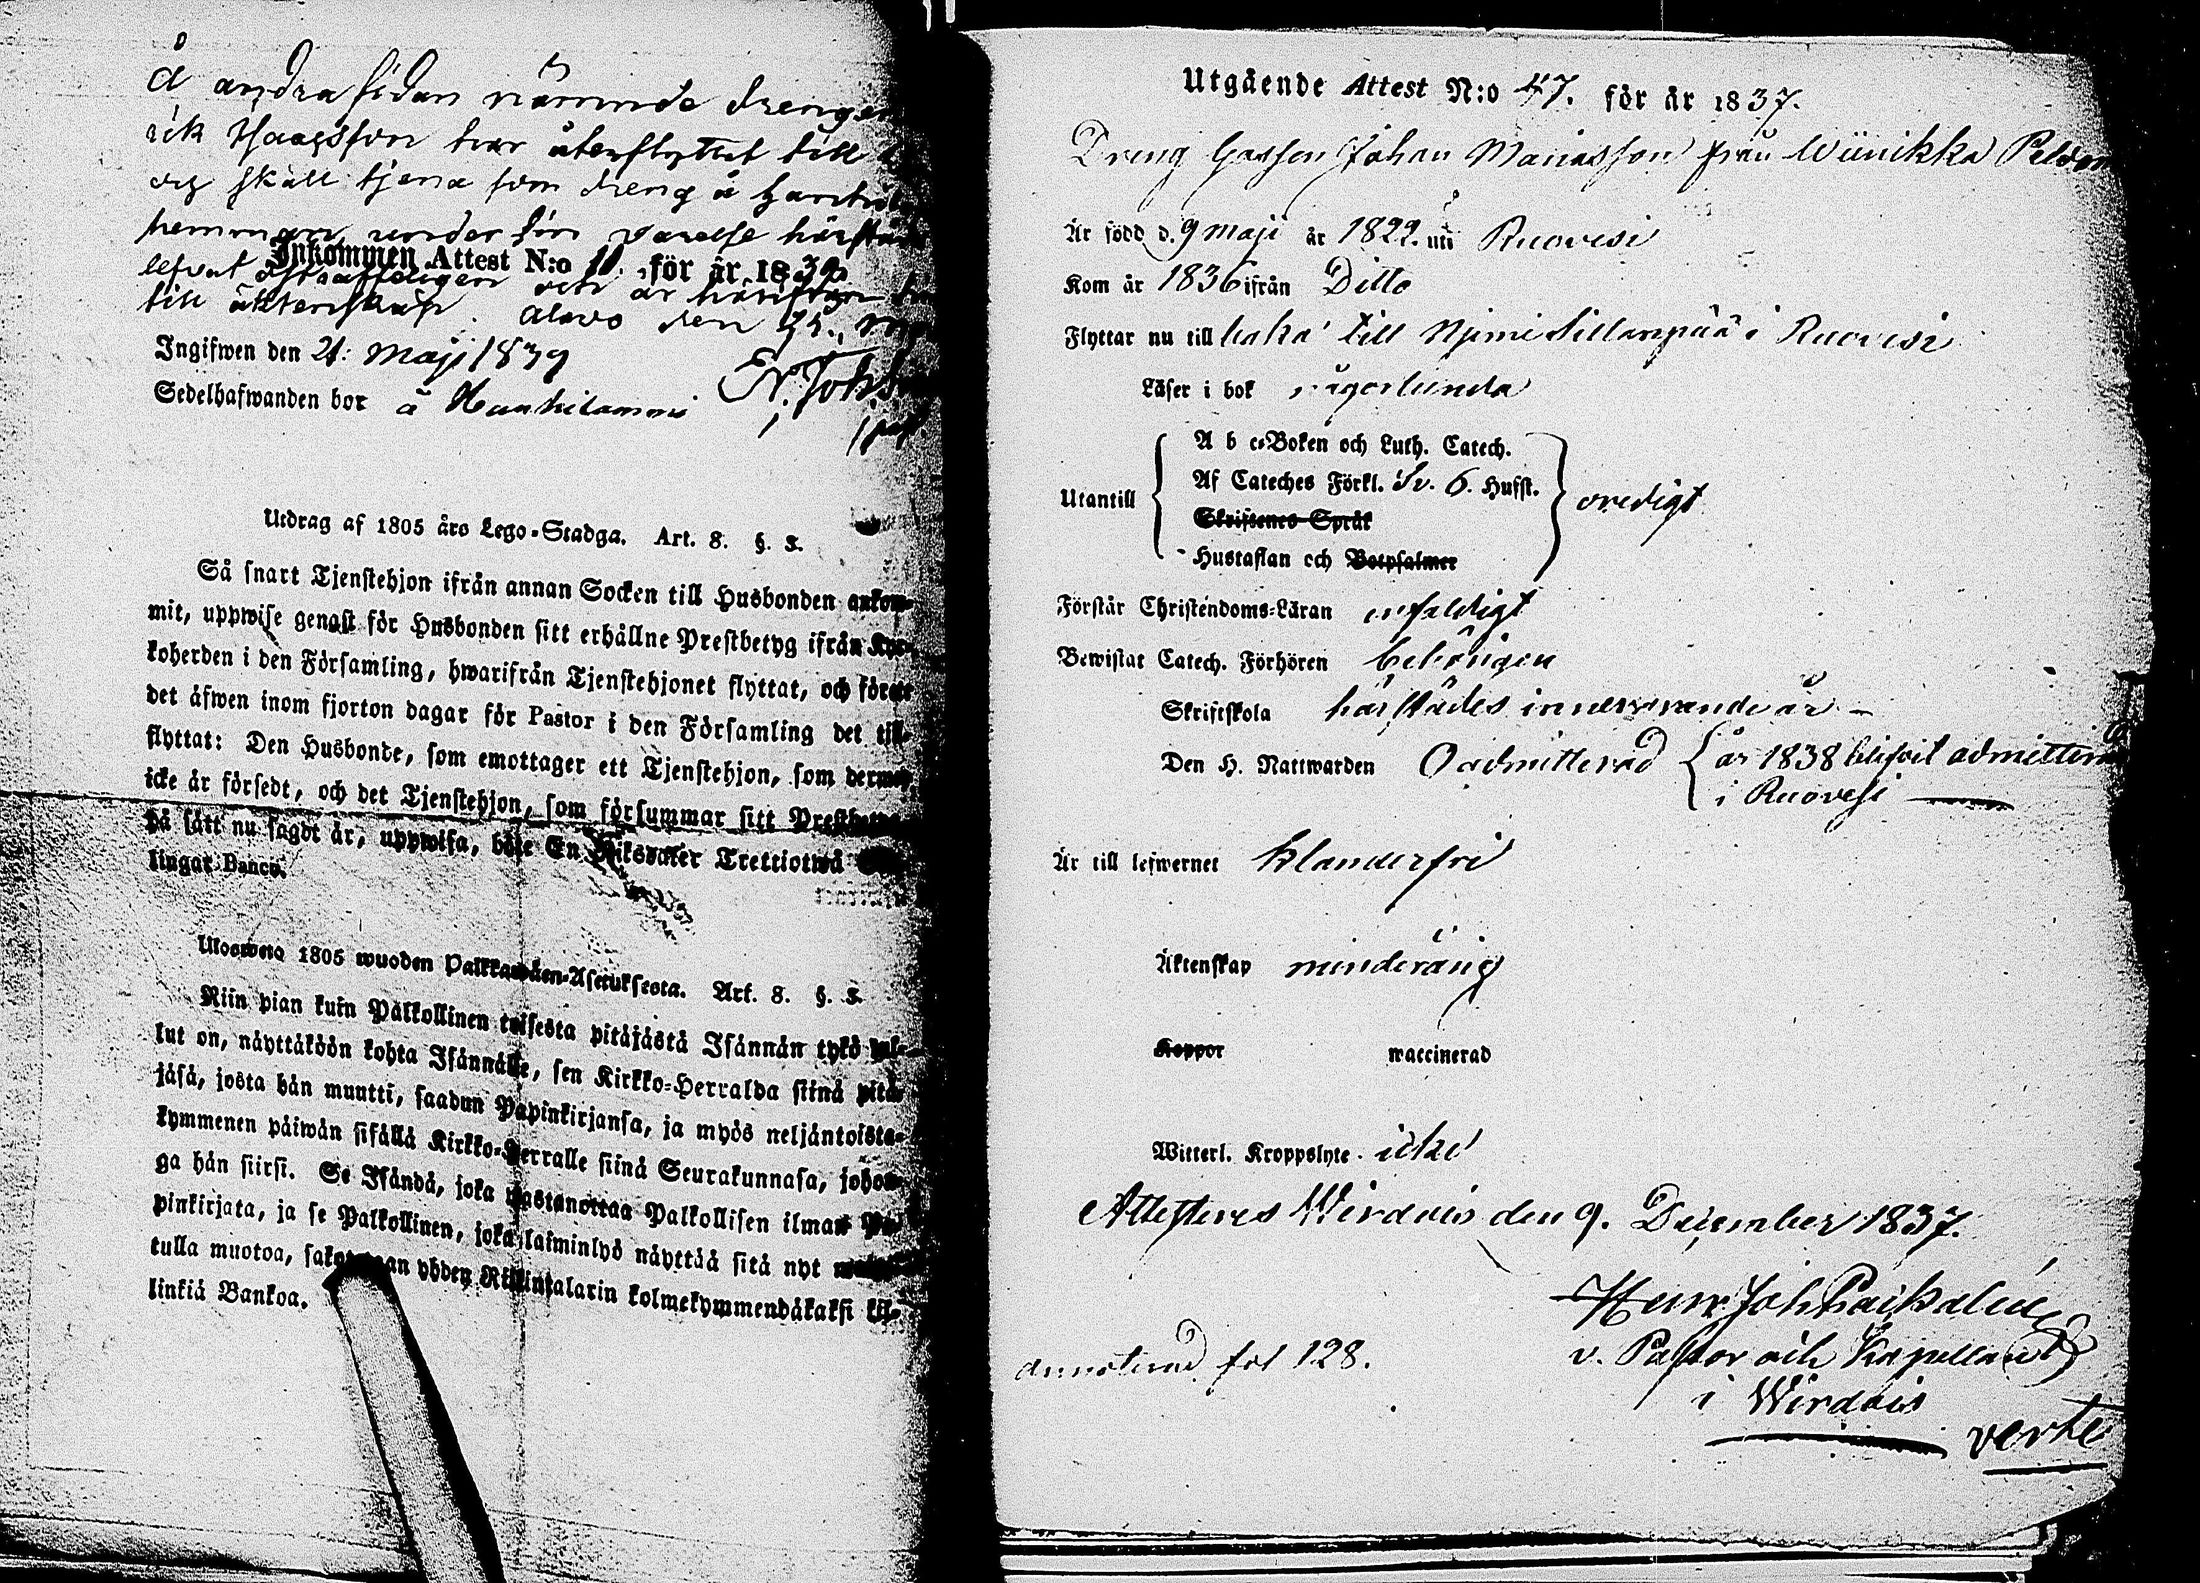 Å andra sidan nämnde drengen
rik Isaacsson har återflyttat till
och skall tjena som dreng å
hemman under sin varelse härstädes
lefvat ostraffeligen och är härifrån
till äktenskap. Alavo den 25.
Inkommen Attest N:o 11. för år 1839
Ingifwen den 21: Maji 1839
Sedelhafwanden bor å Haukilammi
Utdrag af 1805 års Lego-Stadga. Art. 8. §. 3.
Så snart Tjenstehjon ifrån annan Socken till Husbonden ankom-
mit, uppwise genast för Husbonden sitt erhållne Prestbetyg ifrån Kyr-
koherden i den Församling, hwarifrån Tjenstehjonet flyttat, och förete
det äfwen inom fjorton dagar för Pastor i den Församling det till-
flyttat: Den Husbonde, som emottager ett Tjenstehjon, som dermed
icke är försedt, och det Tjenstehjon, som försummar sitt Prestbetyg
på sätt nu sagdt är, uppwisa, böte En Riksdaler Trettiotwå
lingar Banco.
Ulosweto 1805 wuoden Palkkawäen-Asetuksesta. Art. 8. §. 3.
Niin pian kuin Palkollinen toisesta pitäjästä Isännän tykö tul-
lut on, näyttäköön kohta Isännälle, sen Kirkko-Herralda siinä pitä-
jäsä, josta hän muutti, saadun Papinkirjansa, ja myös neljäntoista-
kymmenen päiwän sisällä Kirkko-Herralle siinä Seurakunnasa, johon-
ga hän siirsi. Se Isändä, joka wastanottaa Palkollisen ilman Pa-
pinkirjata, ja se Palkollinen, joka laiminlyö näyttää sitä nyt
tulla muotoa, sakotetaan yhden Riksintalarin kolmekymmendäkaksi kil-
linkiä Bankoa.
Utgående Attest N:o 47. för år 1837.
Dreng Gossen Johan Mariasson från Wünikka
Är född d. 9 maji år 1822. uti Ruovesi
Kom år 1836 ifrån Ditto
Flyttar nu till baka till Sillanpää i Ruovesi
Läser i bok någorlunda
A b c-Boken och Luth. Catech.
Af Cateches Förkl. Sv. 6. Hufst.
Utantill oredigt
Skriftenes Språk
Hustaflan och Botpsalmer
Förstår Christendoms-Läran enfaldigt
Bewistat Catech. Förhören behörigen
Skriftskola härstädes innevarande år
Den H. Nattwarden Oadmitterad år 1838 blifvit admitterad
i Ruovesi
Är till lefwernet klanderfri
Äktenskap minderårig
Koppor waccinerad
Witterl. Kroppslyte. icke
Attesteres Wirdois den 9. December 1837.
Henr Joh
v. Pastor och Kapellan
annoterad fol 128.
i Wirdois
verte